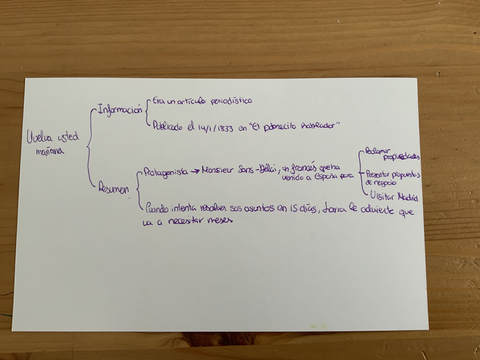 Vuelva usted
mañana
Información
Era un artículo periodístico
Publicado el 14/1/1833 en "El pobrecito hablador"
Resumen
Protagonista → Monsieur Sans-Délai, un francés que ha
venido a España para
Reclamar
propiedades
Presentar propuestas
de negocio
Visitar Madrid
Cuando intenta resolver sus asuntos en 15 días, Larra le advierte que
va a necesitar meses